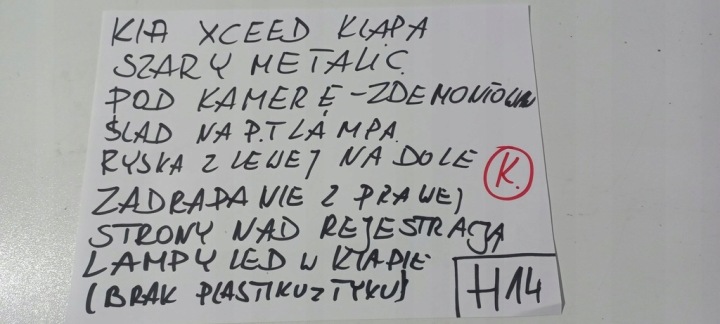 KIA XCEED KLAPA
SZARY METALIC
POD KAMERĘ - ZDEMONTOWN
ŚLAD NA P.T LAMPA
RYSKA Z LEWEJ NA DOLE
K.
ZADRAPANIE Z PRAWEJ
STRONY NAD REJESTRACJĄ
LAMPY LED W KLAPIE
(BRAK PLASTIKU Z TYŁU)
H14